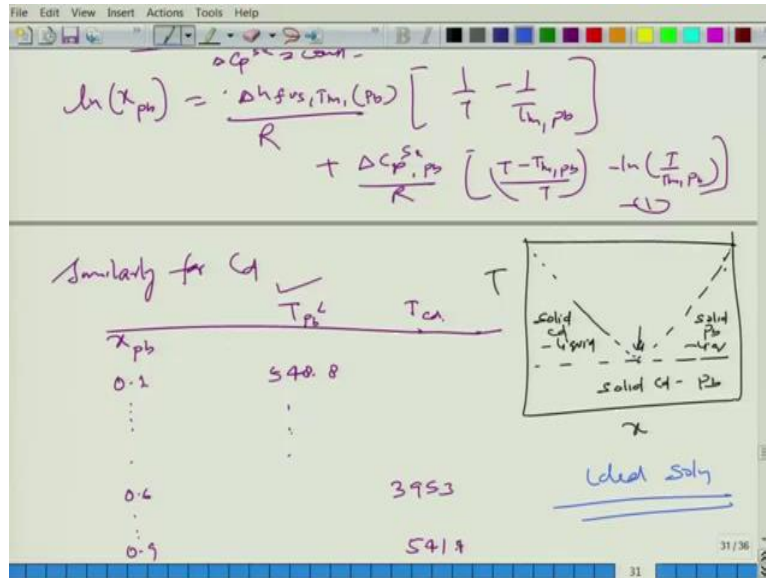 File Edit View Insert Actions Tools Help
ΔCp^SL = const.
ln(x_pb) = Δh_fus,Tm,(Pb) / R [ 1/T - 1/T_m,pb ]
+ ΔCp^SL,pb / R [ (T - T_m,pb / T) - ln(T / T_m,pb) ]
(1)
Similarly for Cd
x_pb T_pb^L T_cd
0.1 548.8
0.6 3953
0.9 541
T
solid cd - liquid
solid pb - liq
solid cd - Pb
x
Ideal Soln
31/36
31